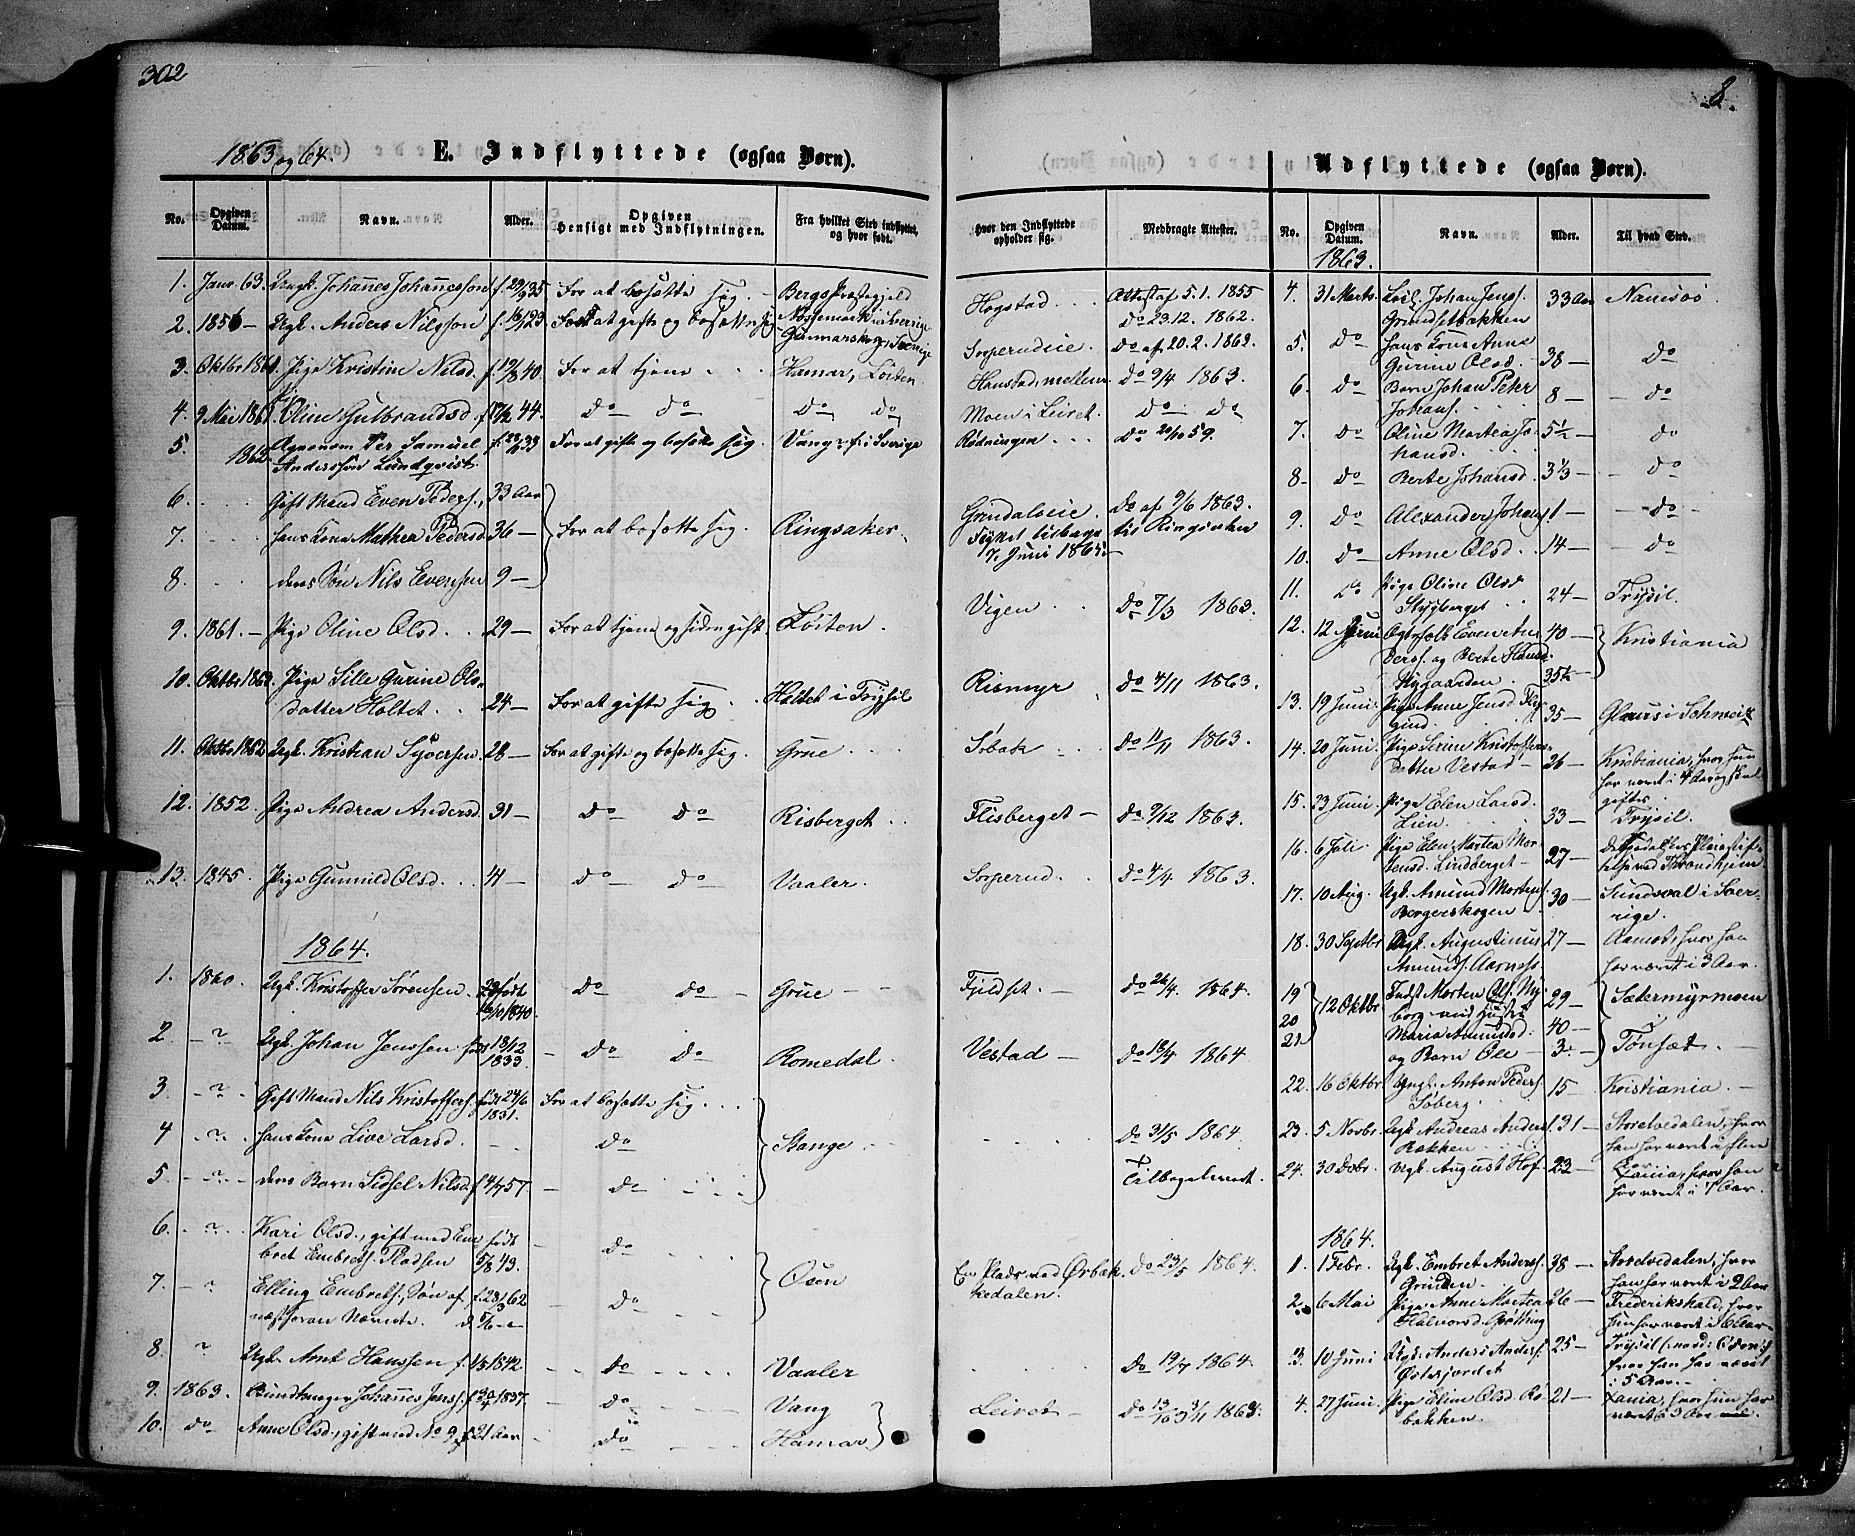 302
8.
1863 og 64.
E. Indflyttede (ogsaa Børn).
No. Opgiven Datum. Navn. Alder. Opgiven Hensigt med Indflytningen. Fra hvilket Sted indflyttet, og hvor født. Hvor den Indflyttede opholder sig. Medbragte Attester.
1. Janr 63. Ungk. Johanes Johanesson f. 35 For at bosætte sig. Bergs Præstegjeld Hogstad Attest af 5.1. 1855
2. 1856 — Ugk. Anders Nilsson f. 23 For at gifte og bosætte sig Sverige Sorperudeie. Do 23.12. 1862.
Do af 20.2. 1862.
3. Oktbr 1861 Pige Kristine Nilsd. f. 40. For at tjene Hamar, Løiten. Hanstad, mellem. Do 9/4 1863.
4. 9 Mai 1861. Oline Gulbrandsd. 44. Do Do Do Do Moen i Leiret. Do Do
5. 1862 Agronom Per Samuel Anderssøn Lundqvist. 33 For at gifte og bosætte sig. Vang f. i Sverige Rødningen Do 59.
6. Gift Mand Even Peders., 33 Aar
7. hans Kone Mathea Pedersd. 36 — For at bosætte sig. Ringsaker. Grindalseie. Do af 9/6 1863.
Flyttet tilbage til Ringsaker
Juni 1865.
8. deres Søn Nils Evensen 9 —
9. 1861. — Pige Oline Olsd. 29 — For at tjene og siden gifte Løiten. Vigen Do 7/3 1863.
10. Oktbr 1863. Pige Sille Gurine Olsdatter Holtet 24 — For at gifte sig. Holtet i Trysil Rismyr Do 4/11 1863.
11. Oktbr 1862 Ugk. Kristian Syversen. 28 — For at gifte og bosætte sig Grue Do 11/11 1863.
12. 1852. Pige Andrea Andersd. 31 — Do Do Risberget Flisberget — Do 9/12 1863.
13. 1845. Pige Gunnild Olsd. 41 — Do Do Vaaler. Sorperud. Do 4/4 1863.
1864.
1. 1860. Ugk. Kristoffer Sørensen. 23 født 16/10 1840. Do Do Grue — Fjeldset. — Do 26/4 1864.
2. — ? Ugk. Johan Jenssen født 13/12 1833. Do Do Romedal Vestad — Do 13/4 1864
3. — ? Gift Mand Nils Kristoffers. født 24/6 1831. For at bosætte sig.
4 — ? hans Kone Live Larsd. Do Stange Do 31/5 1864.
5. — ? deres Barn Sidsel Nilsd. f. 57 Do Tilbageleveret.
6. — ? Kari Olsd., gift med Embret Embrets. Pladsen født 5/8 43. Do
7. — ? Elling Embrets., Søn af næstforan Nævnte. 62 Do Osen En Plads ved Ørbækkedalen. Do 23/5 1864.
8. ? Ugk. Arnt Hanssen f. 1842. Do Vaaler Do 19/7 1864.
9. 1863. Buntmager Johanes Jens. f. 1837. Do Vang Leiret — Do 1863.
10. Do Anne Olsd., gift med No 9, 21 Aar Do Hamar
Udflyttede (ogsaa Børn).
No. Opgiven Datum. Navn. Alder. Til hvad Sted.
1863.
4. 31 Marts. Johan Jens. Grindsetbakken 33 Aar Namsos
5. Do hans Kone Anne Gurine Olsd. 38 — Do
6. Do Barn Johan Peter Johans. 8 — Do
7. Do Oline Martea Johansd. 5½ — Do
8. Do Berte Johansd. 3⅓ — Do
9. Do Alexander Johans. 1 — Do
10. Do Anne Olsd. 14 — Do
11. Do Pige Oline Olsd. Stygberget 24 — Trysil.
12. 12 Juni Egtefolk Even Anders. og Berte Hansd. Stygaarden 40 — 35½ Kristiania
13. 19 Juni Pige Anne Jensd. 35 — Glarus i Schweiz
14. 20 Juni. Pige Serine Kristoffersdatter Vestad — 26 — Kristiania, hvor hun har været i 4 Aar og skal giftes.
15. 23 Juni. Pige Elen Larsd. Lien. 33 — Trysil.
16. 6 Juli. Pige Elen Martea Mortensd. Lindberget — 27 — ved Throndhjem.
17. 10 Aug. Ugk. Amund Mortens. Borgerskogen 30 — Sundsval i Sverrige.
18. 30 Septbr Ugk. Augustinus Amunds. Aarnæs. 27 — Aamot, hvor han har været i 3 Aar.
19 20 21 12 Oktbr Indst Morten Ols. Nyborg med Hustru Maria Amundsd. og Barn Ole — 29 — 40 — 3 — Sætermyrmoen Tønset.
22. 16 Oktbr. Ungk. Anton Peders. Søberg. 15 — Kristiania.
23. 5 Novbr. Ugk. Andreas Anders. Bakken 31 — Storelvedalen, hvor han har været i flere Aar
24. 30 Decbr. Ugk. August Hof. 23 — hvor han har været i 7 Aar.
1864.
1. 1 Febr. Ugk. Embret Anders. Grinden. 38 — Storelvedalen, hvor han har været i 2 Aar
2. 6 Mai Pige Anne Martea Halvorsd. Grøtting 26 — Frederikshald, hvor hun har været i 6 Aar.
3. 10 Juni Ugk. Anders Anders. Østefjordet 25 — Trysil hvor han har været i 5 Aar.
4. 27 Juni. Pige Eline Olsd. Robakken. 21 — hvor hun har været 3 Aar